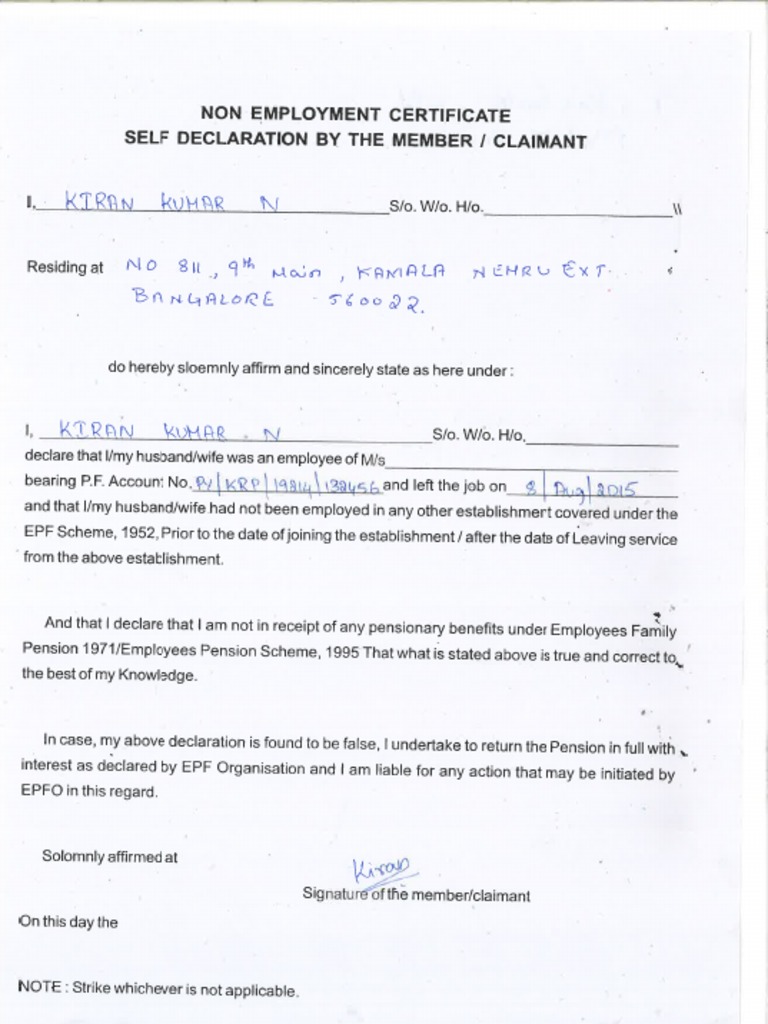 NON EMPLOYMENT CERTIFICATE
SELF DECLARATION BY THE MEMBER / CLAIMANT
I, KIRAN KUMAR N S/o. W/o. H/o.
Residing at NO 811, 9th Main, KAMALA NEHRU EXT.
BANGALORE - 560022.
do hereby sloemnly affirm and sincerely state as here under :
I, KIRAN KUMAR . N S/o. W/o. H/o.
declare that I/my husband/wife was an employee of M/s
bearing P.F. Account No. PY/KRP/19214/132456 and left the job on 8/Aug/2015
and that I/my husband/wife had not been employed in any other establishment covered under the
EPF Scheme, 1952, Prior to the date of joining the establishment / after the date of Leaving service
from the above establishment.
And that I declare that I am not in receipt of any pensionary benefits under Employees Family
Pension 1971/Employees Pension Scheme, 1995 That what is stated above is true and correct to
the best of my Knowledge.
In case, my above declaration is found to be false, I undertake to return the Pension in full with
interest as declared by EPF Organisation and I am liable for any action that may be initiated by
EPFO in this regard.
Solomnly affirmed at
Kiran
Signature of the member/claimant
On this day the
NOTE : Strike whichever is not applicable.